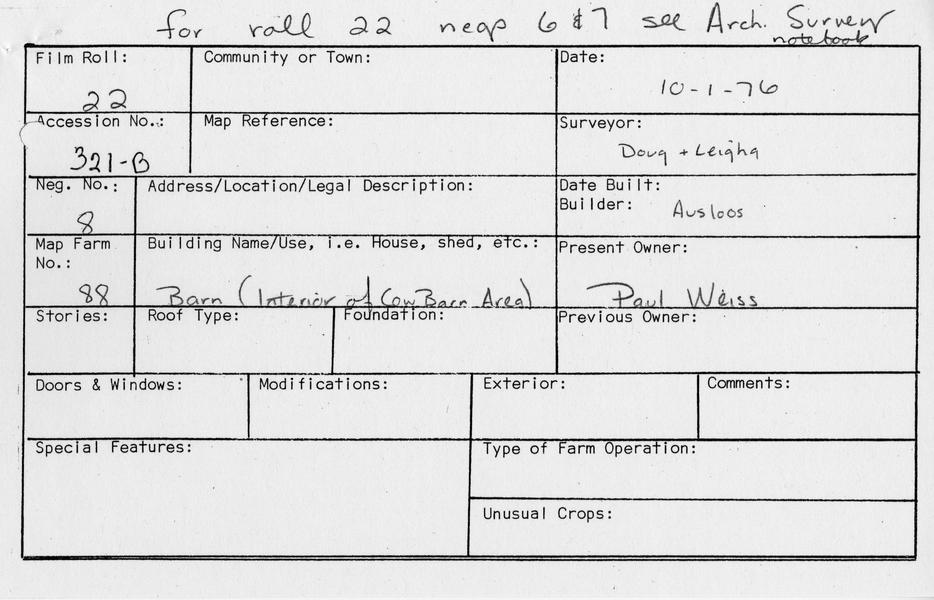 for roll 22 negs 6 & 7 see Arch. Survey
notebook
Film Roll: Community or Town: Date:
22 10-1-76
Accession No.: Map Reference: Surveyor:
321-B Doug + Leigha
Neg. No.: Address/Location/Legal Description: Date Built:
Builder: Ausloos
8
Map Farm Building Name/Use, i.e. House, shed, etc.: Present Owner:
No.:
88 Barn (Interior of Cow Barn Area) Paul Weiss
Stories: Roof Type: Foundation: Previous Owner:
Doors & Windows: Modifications: Exterior: Comments:
Special Features: Type of Farm Operation:
Unusual Crops: